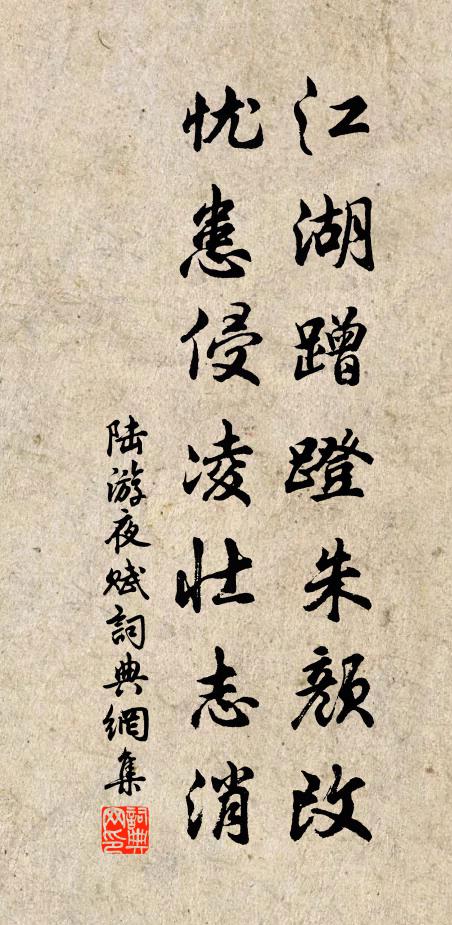 江湖蹭蹬朱颜改
忧患侵凌壮志消
陆游夜赋詞典網集
詞典
网印